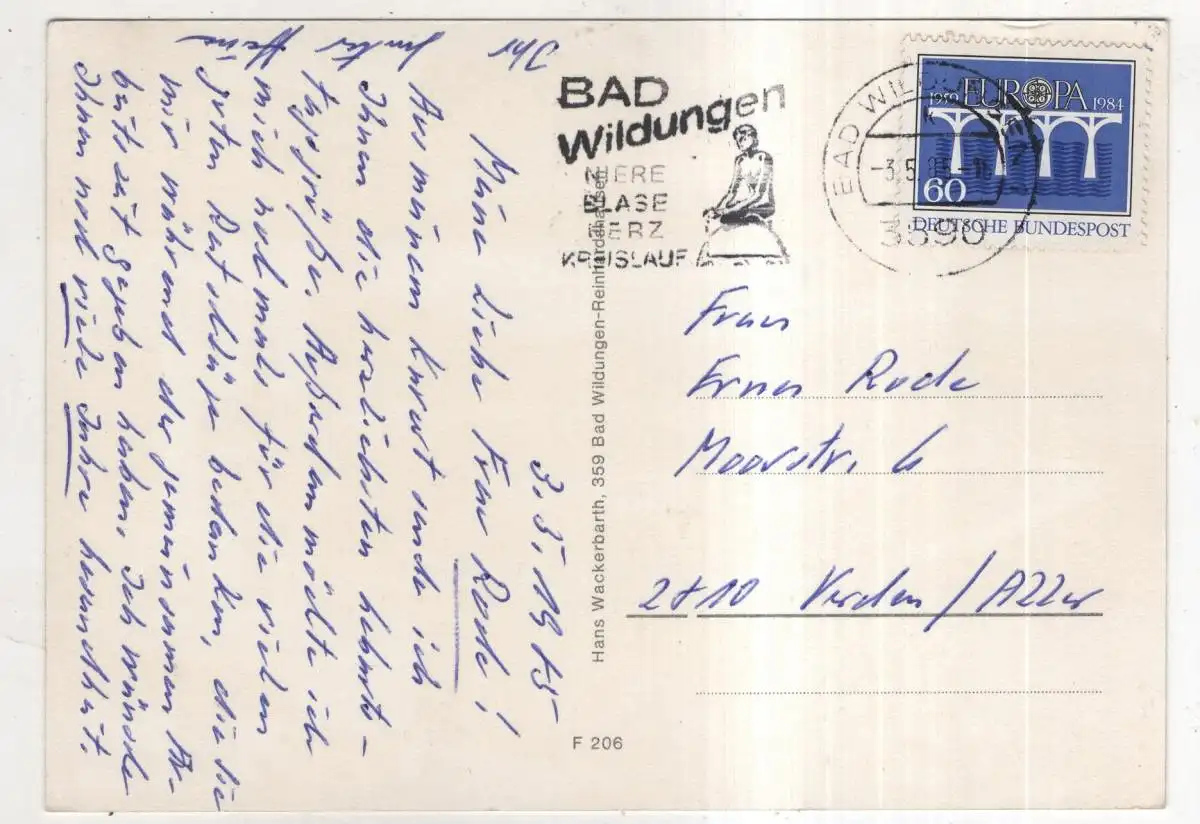 3.5.1985
Meine liebe Frau Rode!
Aus meinem Kurort sende ich
Ihnen die herzlichsten Geburts-
tagsgrüße. Außerdem möchte ich
mich nochmals für die vielen
guten Ratschläge bedanken, die Sie
mir während der gemeinsamen Ar-
beitszeit gegeben haben. Ich wünsche
Ihnen noch viele Jahre Gesundheit.
Ihr
BAD
Wildungen
NIERE
BLASE
HERZ
KREISLAUF
BAD WILDUNGEN
-3.5.85-16
3590
1959 EUROPA 1984
60
DEUTSCHE BUNDESPOST
Hans Wackerbarth, 359 Bad Wildungen-Reinhardshausen
F 206
Frau
Erna Rode
Moorstr. 6
2810 Verden/Aller